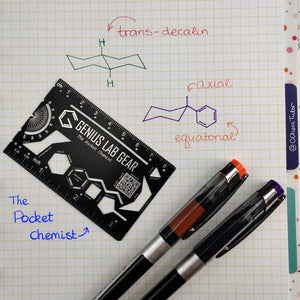 trans-decalin
H
H
axial
equatorial
GENIUS LAB GEAR
The Pocket Chemist
The
Pocket
Chemist